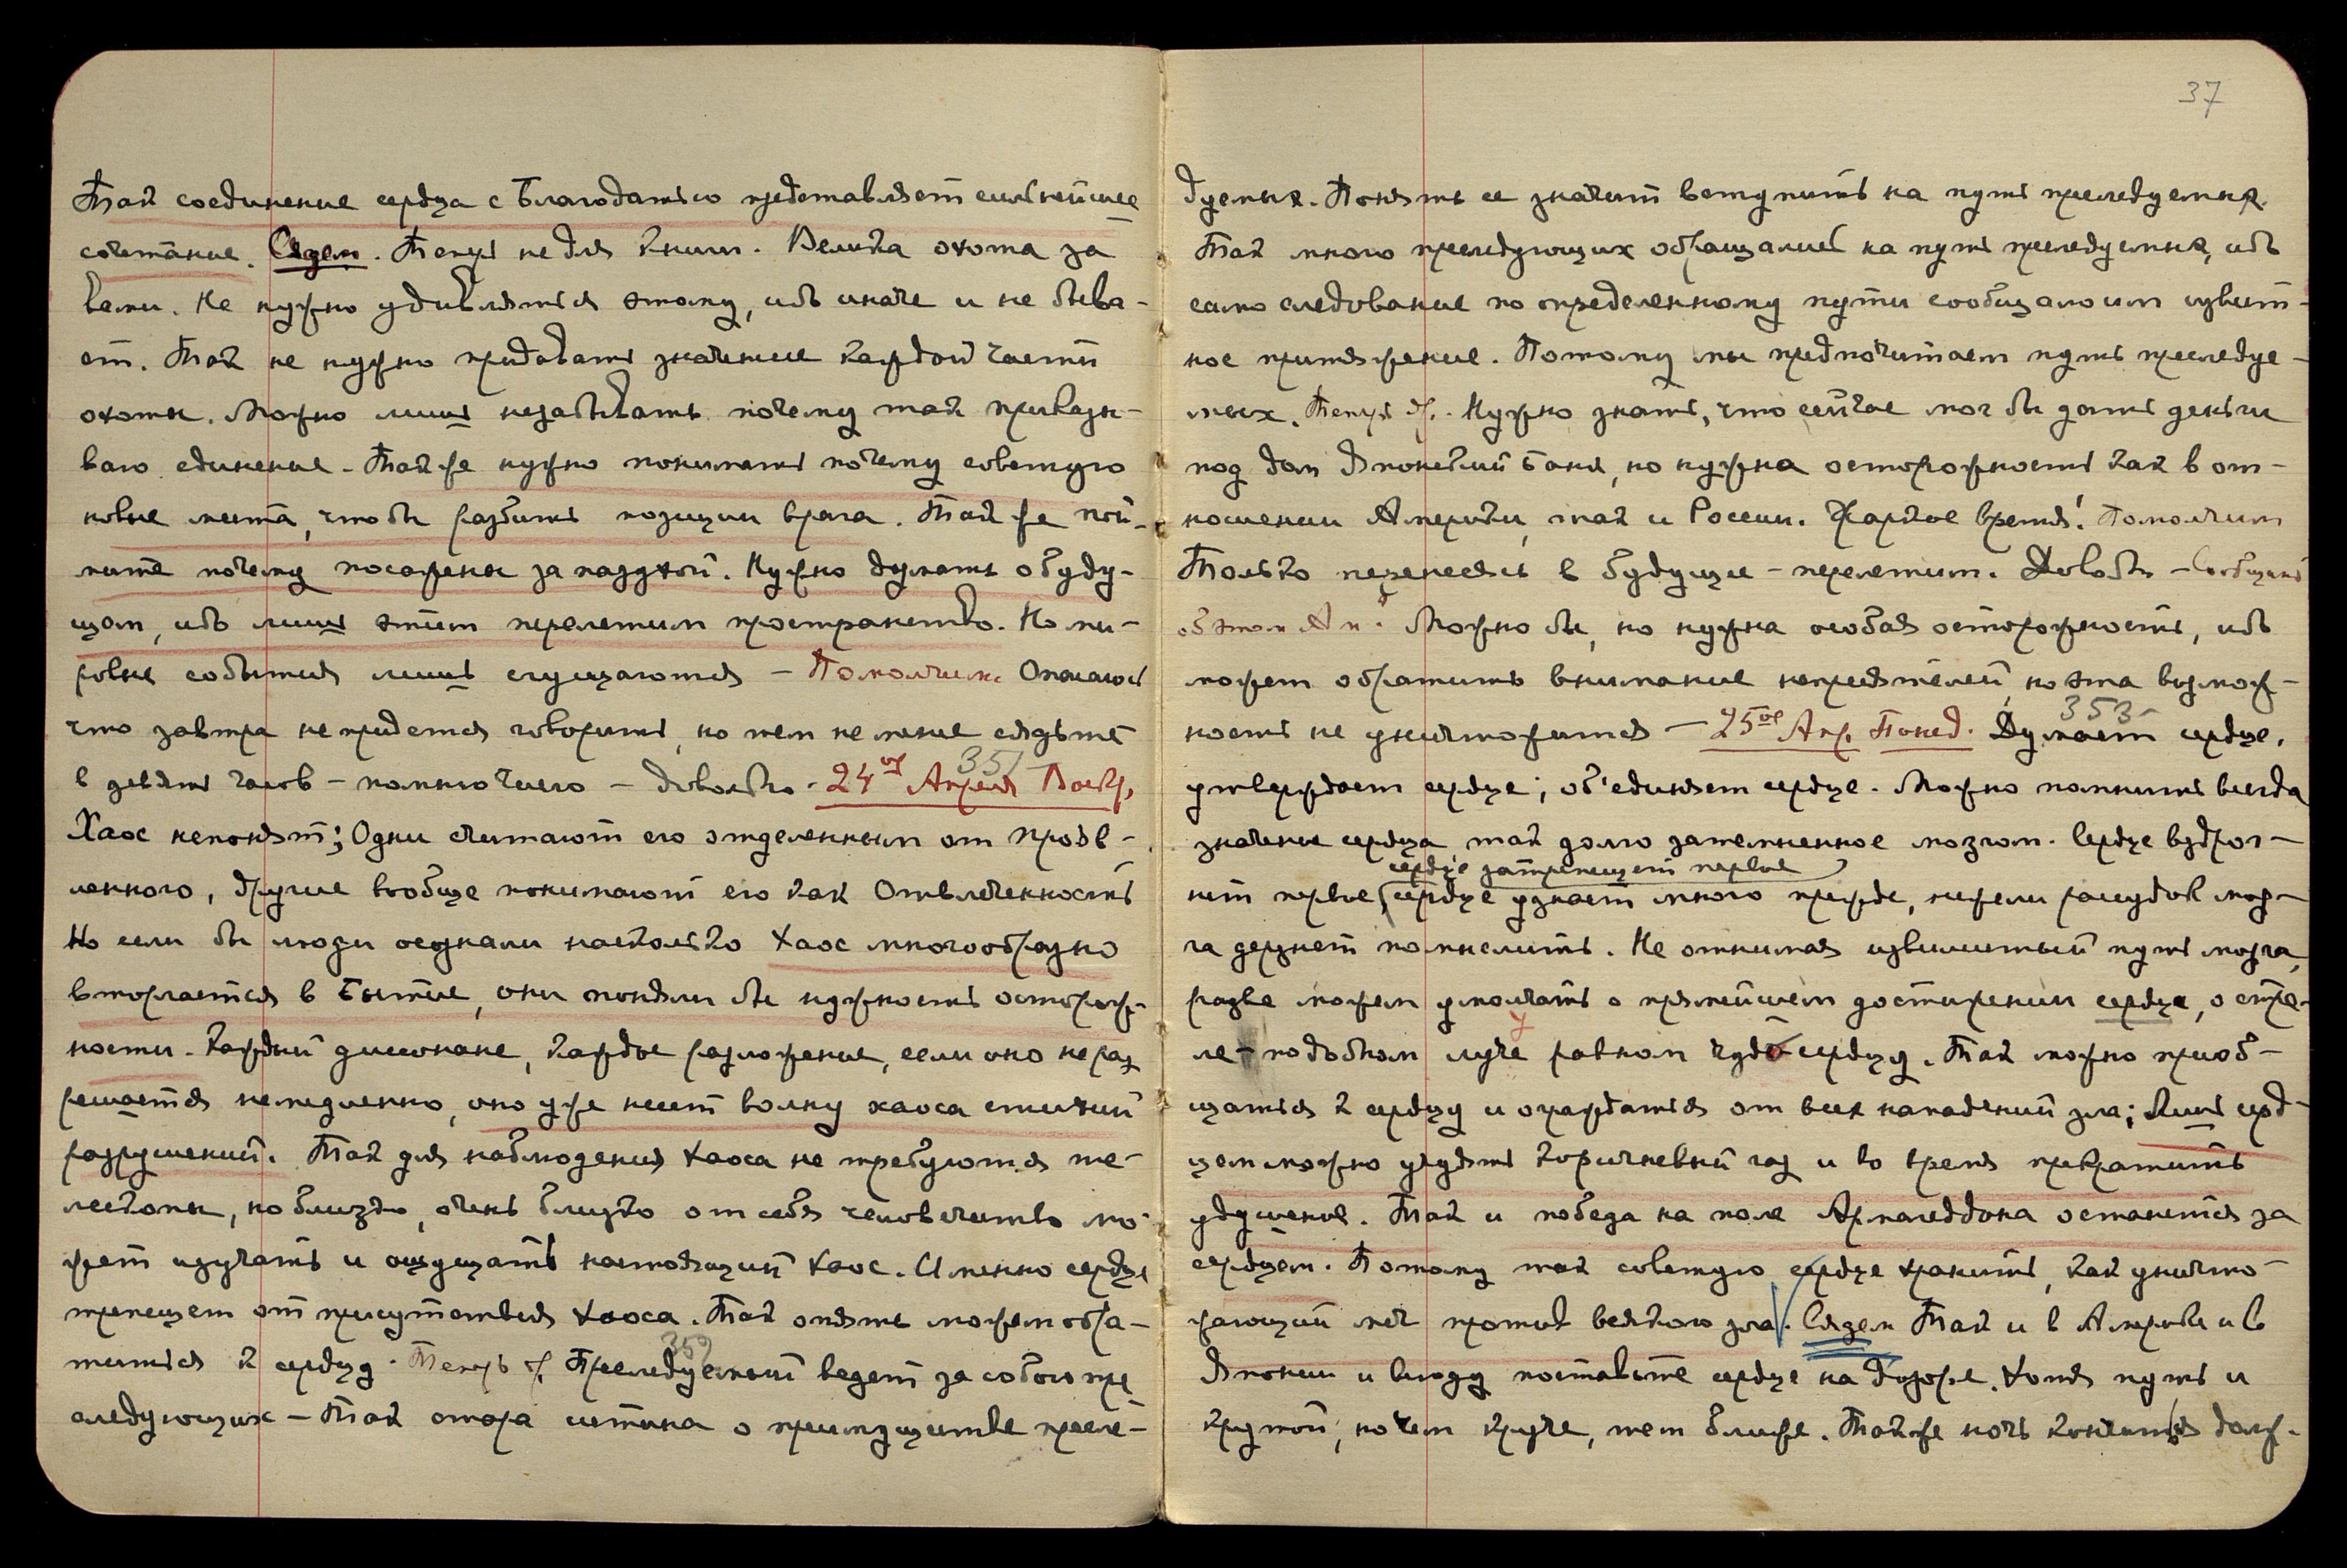 Так соединение сердца с Благодатью представляет сильнейшее
сочетание. Сядем. Теперь не для книги. Велика охота за
вами. Не нужно удивляться этому, ибо иначе и не быва-
ет. Так не нужно придавать значение каждой части
охоты. Можно лишь незабывать почему так приказы-
ваю единение. Также нужно понимать почему советую
новые места, чтобы разбить позиции врага. Так же пой-
мите почему посажены за паздухой. Нужно думать о буду-
щем, ибо лишь этим перелетим пространство. Но ми-
ровые события лишь сгущаются – Помолчим. Опасаюсь
что завтра не придется говорить, но тем не менее сядьте
в девять часов – понемногу – довольно. 24ое Апреля Воскр.
351
Хаос непонят; Одни считают его отделенным от прояв-
ленного, другие вообще понимают его как Отвлеченность
Но если бы люди осознали насколько Хаос многообразно
вторгается в Бытие, они поняли бы нужность осторож-
ности. Каждый диссонанс, каждое разложение, если оно не раз
решается немедленно, оно уже несет волну хаоса стихий
разрушений. Так для наблюдения Хаоса не требуются те-
лескопы, но близко, очень близко от себя человечество мо-
жет изучать и ощущать настоящий Хаос. Именно сердце
трепещет от присутствия Хаоса. Так опять можем обра-
титься к сердцу. Теперь др. Преследуемый ведет за собою пре
352
следующих – Так стара истина о преимуществе пресле-
37
дуемых. Понять ее значит вступить на путь преследуемых.
Так много преследующих обращались на путь преследуемых, ибо
само следование по определенному пути сообщало им извест-
ное притяжение. Потому мы предпочитаем путь преследуе-
мых. Теперь др. Нужно знать, что сейчас мог бы дать деньги
под дом Японский Банк, но нужна осторожность как в от-
ношении Америки, так и России. Жаркое время! Помолчим
Только перенесясь в будущее – перелетим. Довольно – Сообщить
об этом Ам. Можно бы, но нужна особая осторожность, ибо
может обратить внимание неприятелей, но эта возмож-
ность не уничтожится – 25ое Апр. Понед. Думает сердце,
353
утверждает сердце; об'единяет сердце. Можно помнить всегда
значение сердца так долго затемненное мозгом. Сердце вздрог-
сердце затрепещет первое
нет первое, сердце узнает много прежде, нежели рассудок моз-
га дерзнет помыслить. Не отнимая извилистый путь мозга,
разве можем умолчать о прямейшем достижении сердца, о стре-
ле-подобном луче равном чуду сердцу. Так можно приоб-
щаться к сердцу и ограждаться от всех нападений зла; Лишь серд-
цем можно учуять коричневый газ и во время прекратить
удушение. Так и победа на поле Армагеддона останется за
сердцем. Потому так советую сердце хранить, как уничто-
жающий меч против всякого зла. Сядем Так и в Америке и в
Японии и всюду поставьте сердце на дозоре. Хотя путь и
крутой, но чем круче, тем ближе. Также ночь кончится долж-